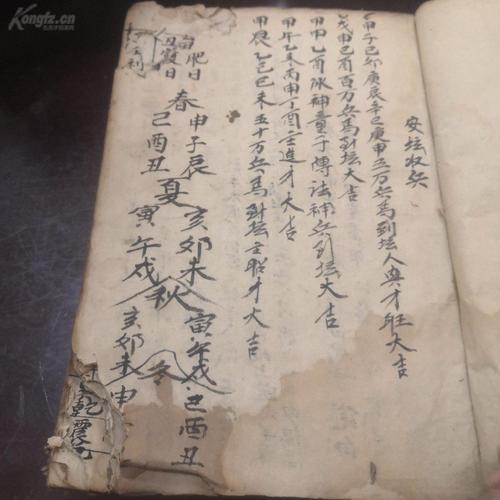 安坛收兵
甲子己卯庚辰辛巳庚申五万兵馬到坛人興才旺大吉
戊申己酉百万兵馬到坛大吉
甲申乙酉水神童子傳法補兵到坛大吉
甲午乙未丙申丁酉主進才大吉
甲辰乙巳己未五十万兵馬到坛主招才大吉
日肥日
日殺日
春
申子辰
巳酉丑
夏
亥卯未
寅午戌
秋
寅午戌
亥卯未
冬
巳酉丑
申
乾震
Kongfz.cn